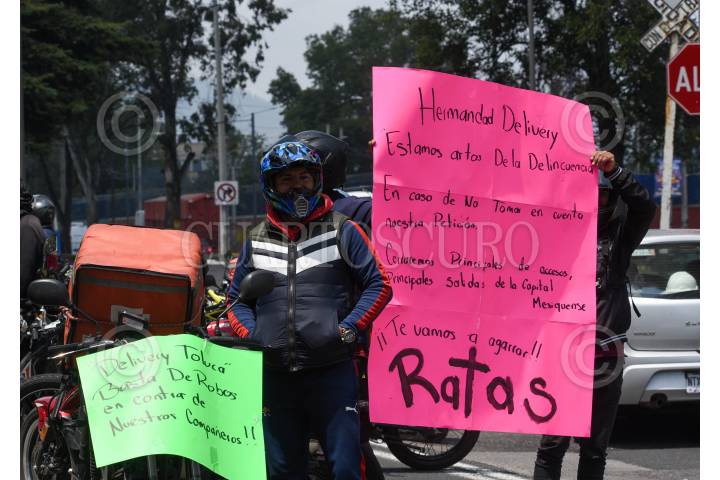 Hermandad Delivery
Estamos artos De la Delincuencia
En caso de No Tomar en cuenta
nuestra Petición.
Cerraremos Principales de accesos,
Principales Salidas de la Capital
Mexiquense
¡Te vamos a agarrar!!
Ratas
Delivery Toluca
Basta De Robos
en contra de
Nuestros Compañeros!!
AL
CUARTOSCURO